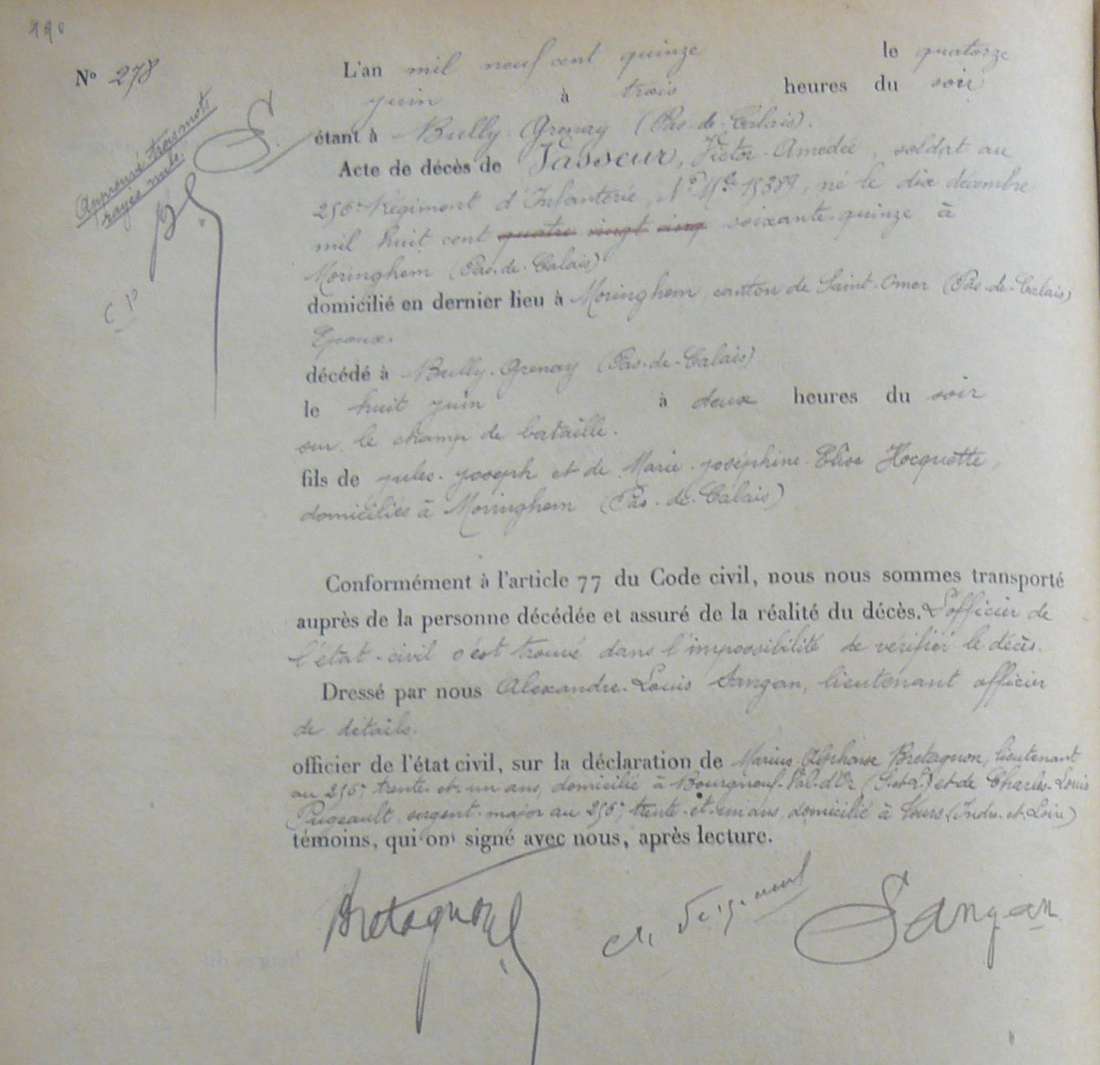 N° 278
L'an mil neuf cent quinze le quatorze
juin à trois heures du soir
étant à Bully-Grenay (Pas-de-Calais).
Acte de décès de Vasseur, Victor-Amédée, soldat au
256e Régiment d'Infanterie, N° Mle 15389, né le dix décembre
mil huit cent quatre vingt cinq soixante-quinze à
Moringhem (Pas-de-Calais)
domicilié en dernier lieu à Moringhem, canton de Saint-Omer (Pas-de-Calais)
Epoux.
décédé à Bully-Grenay (Pas-de-Calais)
le huit juin à deux heures du soir
sur le champ de bataille.
fils de jules-joseph et de Marie-joséphine-Elise Hocquette,
domiciliés à Moringhem (Pas-de-Calais)
Conformément à l'article 77 du Code civil, nous nous sommes transporté
auprès de la personne décédée et assuré de la réalité du décès. L'officier de
l'état-civil s'est trouvé dans l'impossibilité de vérifier le décès.
Dressé par nous Alexandre-Louis Sangan, lieutenant officier
de détails.
officier de l'état civil, sur la déclaration de Marius-Alphonse Bretagnon, lieutenant
au 256e trente-et-un ans, domicilié à Bourgneuf-Val-d'Or (S.et.L.) et de Charles-Louis
sergent-major au 256e trente-et-un ans, domicilié à Tours (Indre-et-Loire)
témoins, qui ont signé avec nous, après lecture.
Approuvé trois mots
rayés nuls
Bretagnon
Sangan